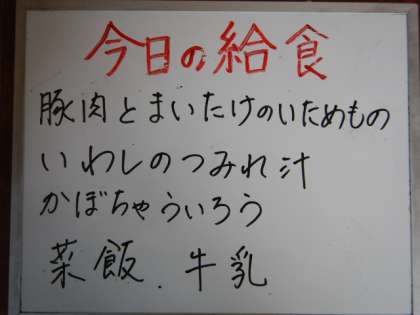 今日の給食
豚肉とまいたけのいためもの
いわしのつみれ汁
かぼちゃういろう
菜飯.牛乳